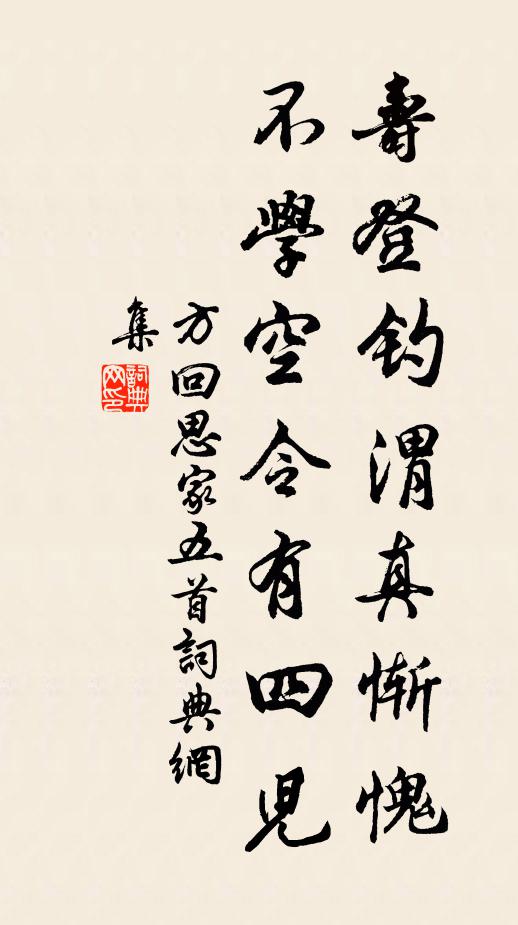 壽登釣渭真慚愧
不學空令有四兒
方回思家五首詞典網
集
詞典網印